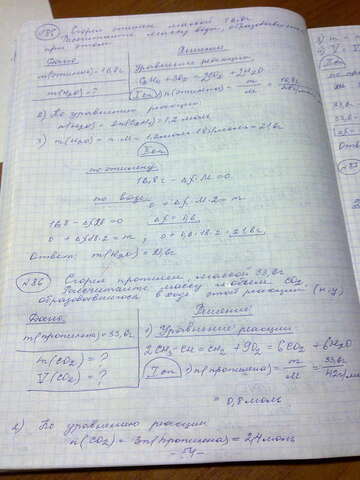 №35 Сгорел этилен массой 16,8г.
Рассчитайте массу воды, образовавшейся
при этом.
Дано: Решение
m(этилена)=16,8г Уравнение реакции
m(H2O)=? C2H4 + 3O2 = 2CO2 + 2H2O
I сп n(этилена) = m/M = 16,8г
2) По уравнению реакции
n(H2O) = 2n(C2H4) = 1,2 моль
3) m(H2O) = n·M = 1,2моль·18г/моль = 21,6г
II сп
по этилену
16,8г - ΔX·M = 0
по воде
0 + ΔX·M·2 = m
16,8 - ΔX28 = 0 ΔX = 0,6
0 + ΔX18·2 = m, 0 + 0,6·18·2 = 21,6г
Ответ: m(H2O) = 21,6г
№36 Сгорел пропилен, массой 33,6г
Рассчитайте массу и объем CO2,
образовавшегося в ходе этой реакции (н.у)
Дано: Решение
m(пропилена)=33,6г 1) Уравнение реакции
m(CO2) = ? 2CH3-CH=CH2 + 9O2 = 6CO2 + 6H2O
V(CO2) = ? I сп n(пропилена) = m/M = 33,6г/42г/моль
= 0,8моль
2) По уравнению реакции
n(CO2) = 3n(пропилена) = 2,4 моль
-54-